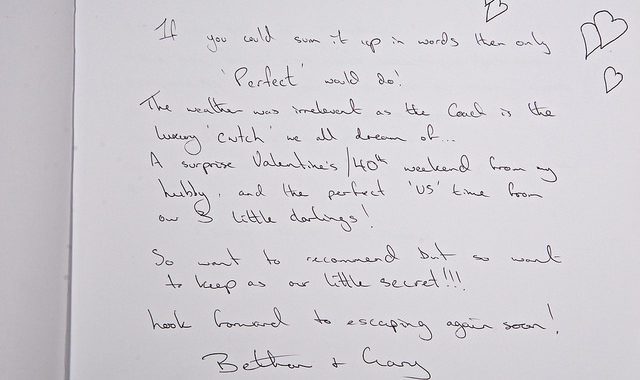 If you could sum it up in words then only
'Perfect' would do!
The weather was irrelevent as the Coach is the
luxury 'cwtch' we all dream of...
A surprise Valentine's/40th weekend from my
hubby, and the perfect 'US' time from
our 3 little darlings!
So want to recommend but so want
to keep as our little secret!!!
Look forward to escaping again soon!
Bethan + Gary